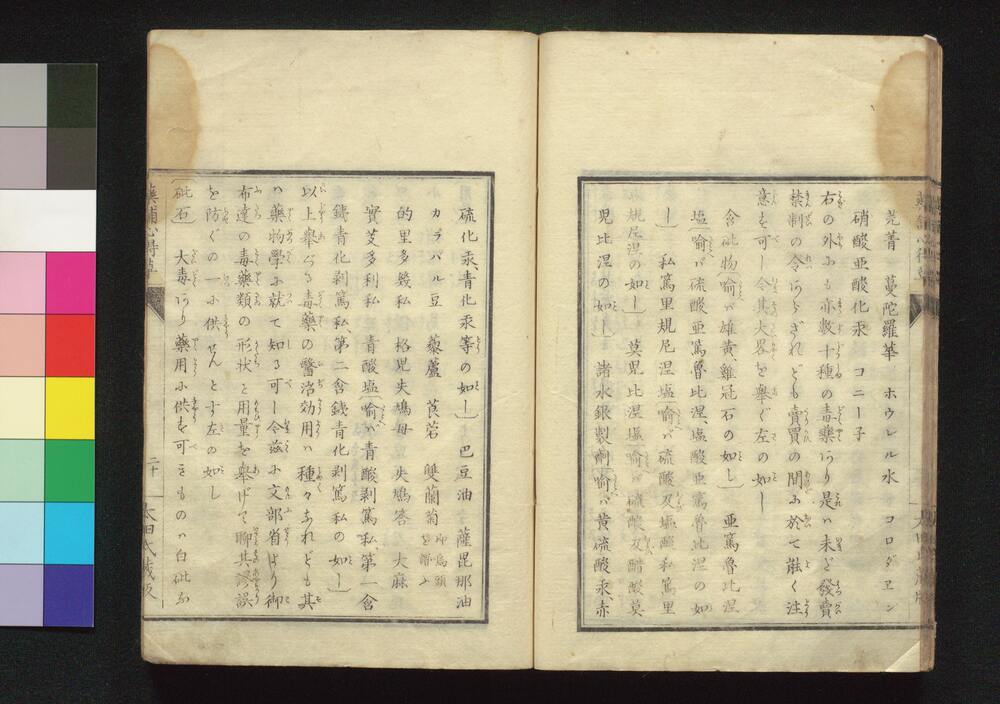 莞菁 蔓陀羅華 ホウレル水 コロダヱン
硝酸亜酸化汞 コニー子
右の外にも亦数十種の毒藥あり是ハ未ど發賣
禁制の令あらざれども賣買の間に於て能く注
意を可し今其大畧を擧ぐ左の如し
含砒物(喩バ雄黄、雞冠石の如し) 亜篤魯比涅
塩(喩バ硫酸亜篤魯比涅、塩酸亜篤魯比涅の如
し) 私篤里規尼涅塩(喩バ硫酸及塩酸私篤里
規尼涅の如し) 莫児比涅塩(喩バ硫酸及醋酸莫
児比涅の如し) 諸水銀製劑(喩バ黄硫酸汞、赤
硫化汞、青化汞等の如し) 巴豆油 薩毘那油
カラバル豆 藜蘆 莨菪 雙蘭菊 即烏頭を謂ふ
的里多幾私 格児失鳩母 失鳩答 大麻
實芰多利私 青酸塩(喩バ青酸剥篤私、第一含
銕青化剥篤私、第二含銕青化剥篤私の如し)
以上擧ぐる毒藥の醫治効用ハ種々あれども其
ハ藥物學に就て知る可べし今茲に文部省より御
布達の毒藥類の形状と用量を擧げて聊其謬誤
を防ぐの一に供せんとす左の如し
砒石 大毒あり藥用に供を可きものハ白砒な
藥舗心得草
二十
太田氏蔵版